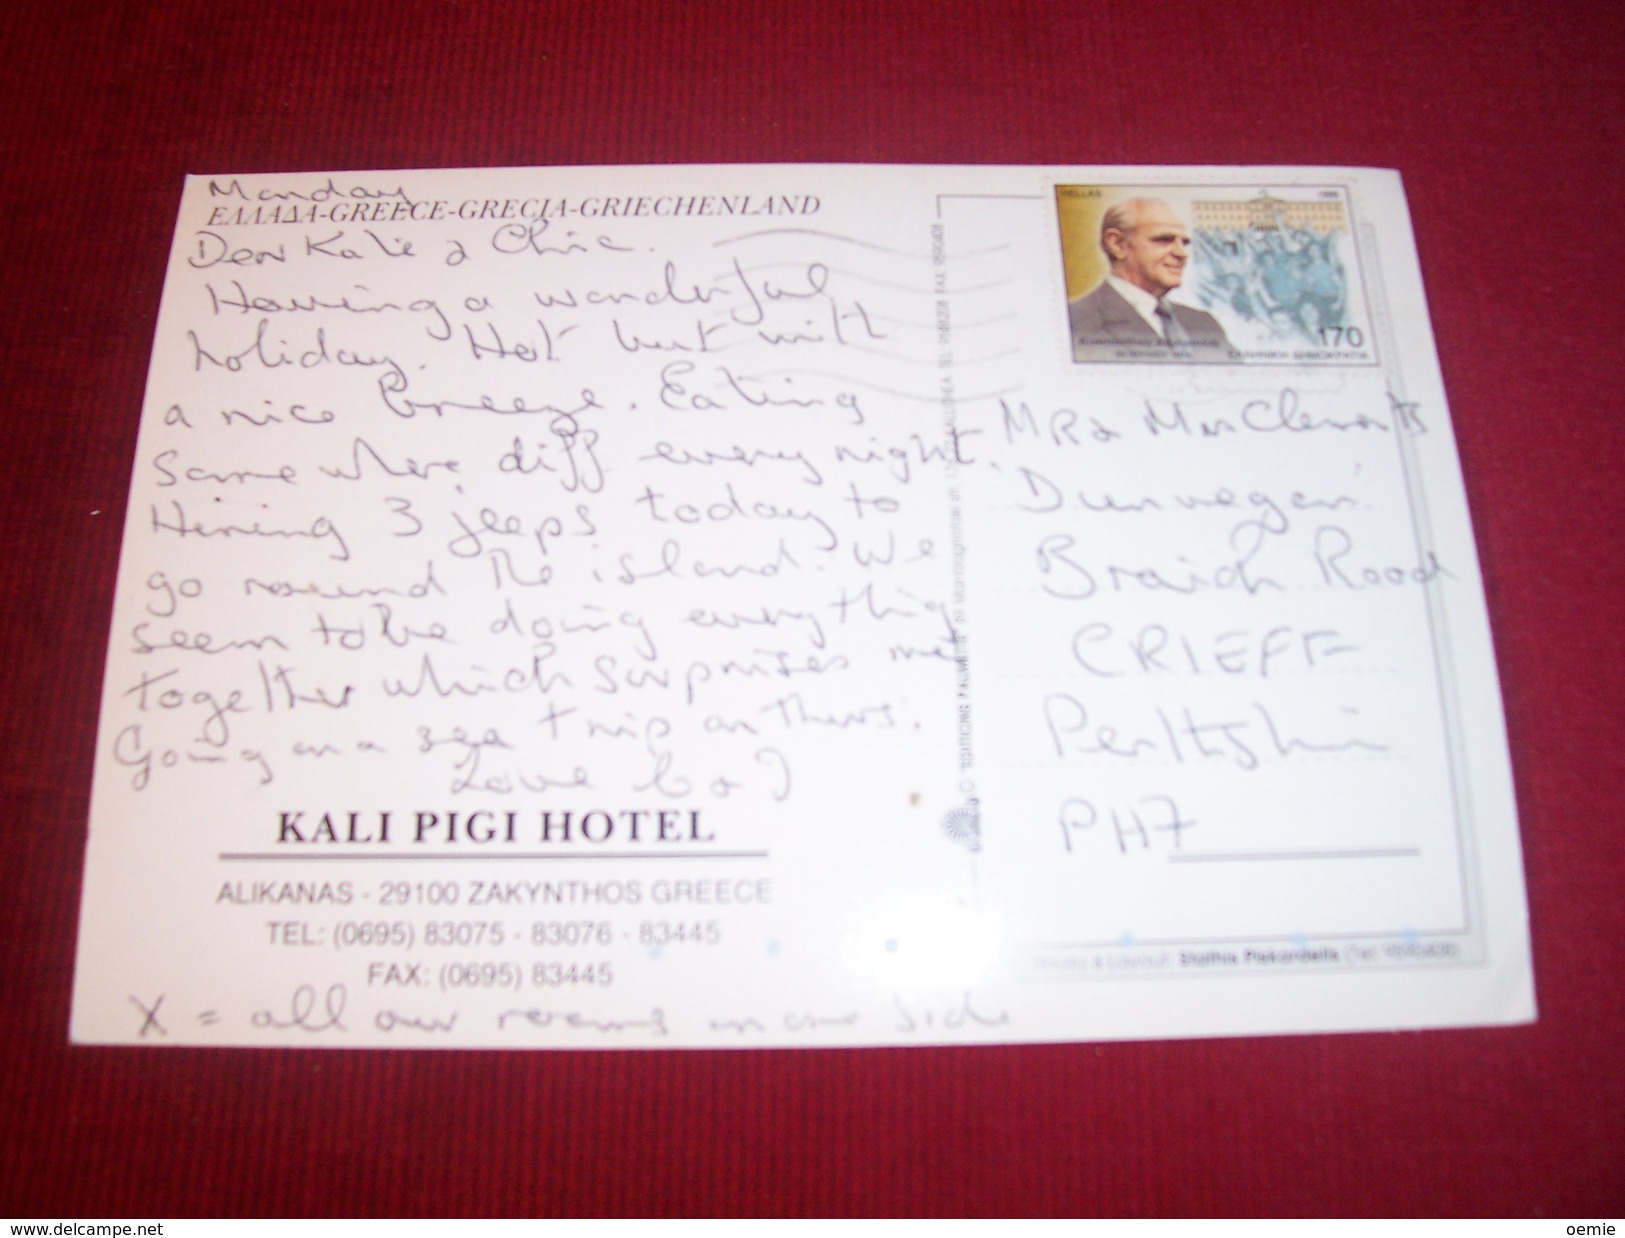 Monday
ΕΛΛΑΔΑ-GREECE-GRECIA-GRIECHENLAND
Dear Katie & Chic.
Having a wonderful
holiday. Hot but with
a nice breeze. Eating
somewhere diff every night.
Hiring 3 jeeps today to
go round the island. We
seem to be doing everything
together which surprises me!
Going on a sea trip on Thurs.
Love
KALI PIGI HOTEL
ALIKANAS - 29100 ZAKYNTHOS GREECE
TEL: (0695) 83075 - 83076 - 83445
FAX: (0695) 83445
X = all our rooms on one side
HELLAS
170
ΕΛΛΗΝΙΚΗ ΔΗΜΟΚΡΑΤΙΑ
MR & Mrs Clements
Dunvegan
Braidh Road
CRIEFF
Perthshire
PH7
delcampe.net
oemie